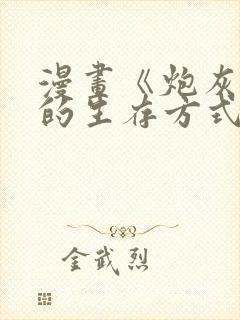 漫畫《炮灰
的生存方式
金武烈